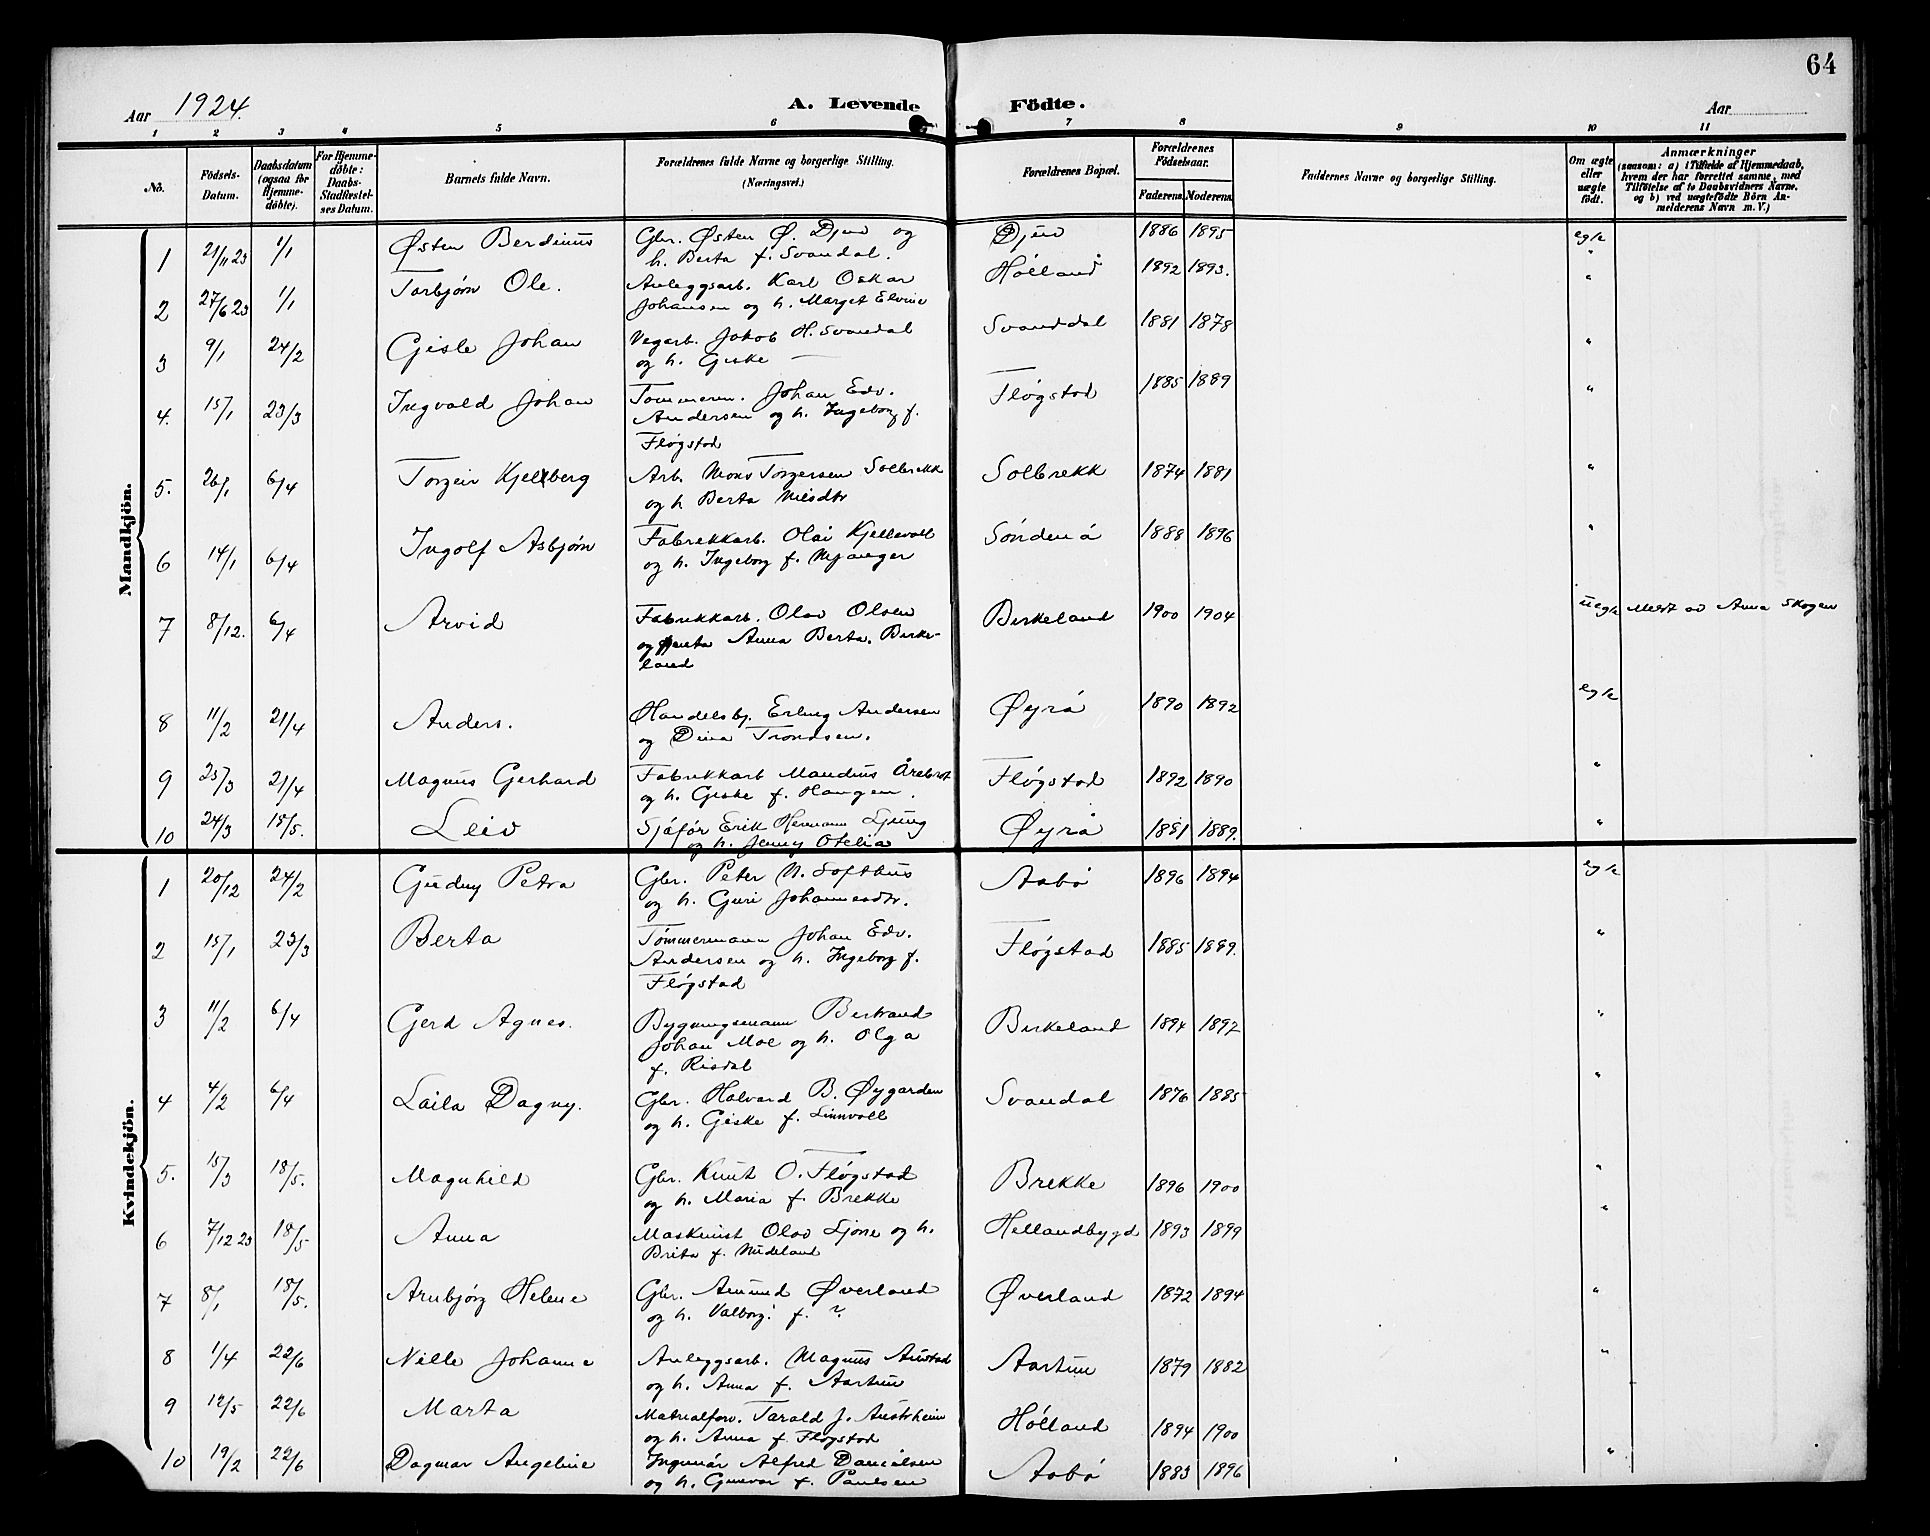 64
Aar 1924.
A. Levende Födte.
Aar
1 2 3 4 5 6 7 8 9 10 11
No.
Födsels-Datum.
Daabsdatum (ogsaa for Hjemme-döbte).
For Hjemme-döbte: Daabs-Stadfæstel-ses Datum.
Barnets fulde Navn.
Forældrenes fulde Navne og borgerlige Stilling. (Næringsvei.)
Forældrenes Bopæl.
Forældrenes Födselsaar.
Faderens. Moderens.
Faddernes Navne og borgerlige Stilling.
Om ægte eller uægte födt.
Anmærkninger
(saasom: a) i Tilfælde af Hjemmedaab,
hvem der har forrettet samme, med
Tilföielse af to Daabsvidners Navne,
og b) ved uægtefödte Börn An-
melderens Navn m. V.)
Mandkjön.
1 21/11 23 1/1 Østen Berdinus Gbr. Østen Ø. Djuv og Djuv 1886 1895 egte
h. Berta f. Svandal. "
2 27/6 23 1/1 Torbjørn Ole. Anleggsarb. Karl Oskar Hølland 1892 1893. "
Johansen og h. Marget Elvine
3 9/1 24/2 Gisle Johan Vegarb. Jakob H. Svandal Svanddal 1881 1878 "
og h. Giske —
4. 15/1 23/3 Ingvald Johan Tømmerm. Johan Edv. Fløgstad 1885 1889 "
Andersen og h. Ingeborg f.
Fløgstad
5. 26/1 6/4 Torgeir Kjellberg Arb. Mons Torgersen Solbrekk Solbrekk 1874 1881 "
og h Berta Nilsdtr
6 14/1 6/4 Ingolf Asbjørn Fabrekkarb. Olai Kjellevoll Søndenå 1888 1896 "
og h. Ingeborg f. Mjanger
7 8/12. 6/4 Arvid Fabrikkarb. Olav Olsen Birkeland 1900 1904 uegte Meldt av Anna Skogen
og jenta Anna Berta. Birke-
land
8 11/2 21/4 Anders. Handelsbj. Erling Andersen Øyrå 1890 1892 egte
og Dina Trondsen.
9 25/3 21/4 Magnus Gerhard Fabrikkarb Maudius Årebrot Fløgstad 1892 1890 "
og h. Giske f. Haugen.
10 24/3 18/5. Leiv Sjåfør Erik Hermann Ljung Øyrå 1881 1889. "
og h. Jenny Otelia
Kvindekjön.
1 20/12 24/2 Gudny Petra Gbr. Peter N. Softhus Aabø 1896 1894 egte
og h. Guri Johannesdtr.
2 15/1 23/3 Berta Tømmermann Johan Edv. Fløgstad 1885 1889. "
Andersen og h. Ingeborg f.
Fløgstad
3 11/2 6/4 Gerd Agnes. Bygningsmann Bertrand Birkeland 1894 1897 "
Johan Moe og h. Olga
f. Risdal
4 4/2 6/4 Laila Dagny. Gbr. Halvard B. Øygarden Svandal 1876 1885 "
og h. Giske f. Linnvoll
5. 15/3 18/5. Magnhild Gbr. Knut O. Fløgstad Brekke 1896 1900 "
og h. Maria f. Brekke
6 7/12 23 18/5 Anna Maskinist Olav Ljone og h. Hellandbygd 1893 1899 "
Brita f. Mideland
7 8/1 18/5. Arnbjørg Helene Gbr. Amund Øverland Øverland 1872 1894 "
og h. Valborg f. ?
8 1/4 22/6 Nille Johanne Anleggsarb. Magnus Austad Aartun 1879 1882 "
og h. Anna f. Aartun
9 12/5 22/6 Marta Matrialforv. Tarald J. Austrheim Hølland 1894 1900
og h. Anna f. Fløgstad
10 19/2 22/6 Dagmar Angeline Ingeniør Alfred Danielsen Aabø 1883 1896 "
og h. Gunvor f. Paulsen